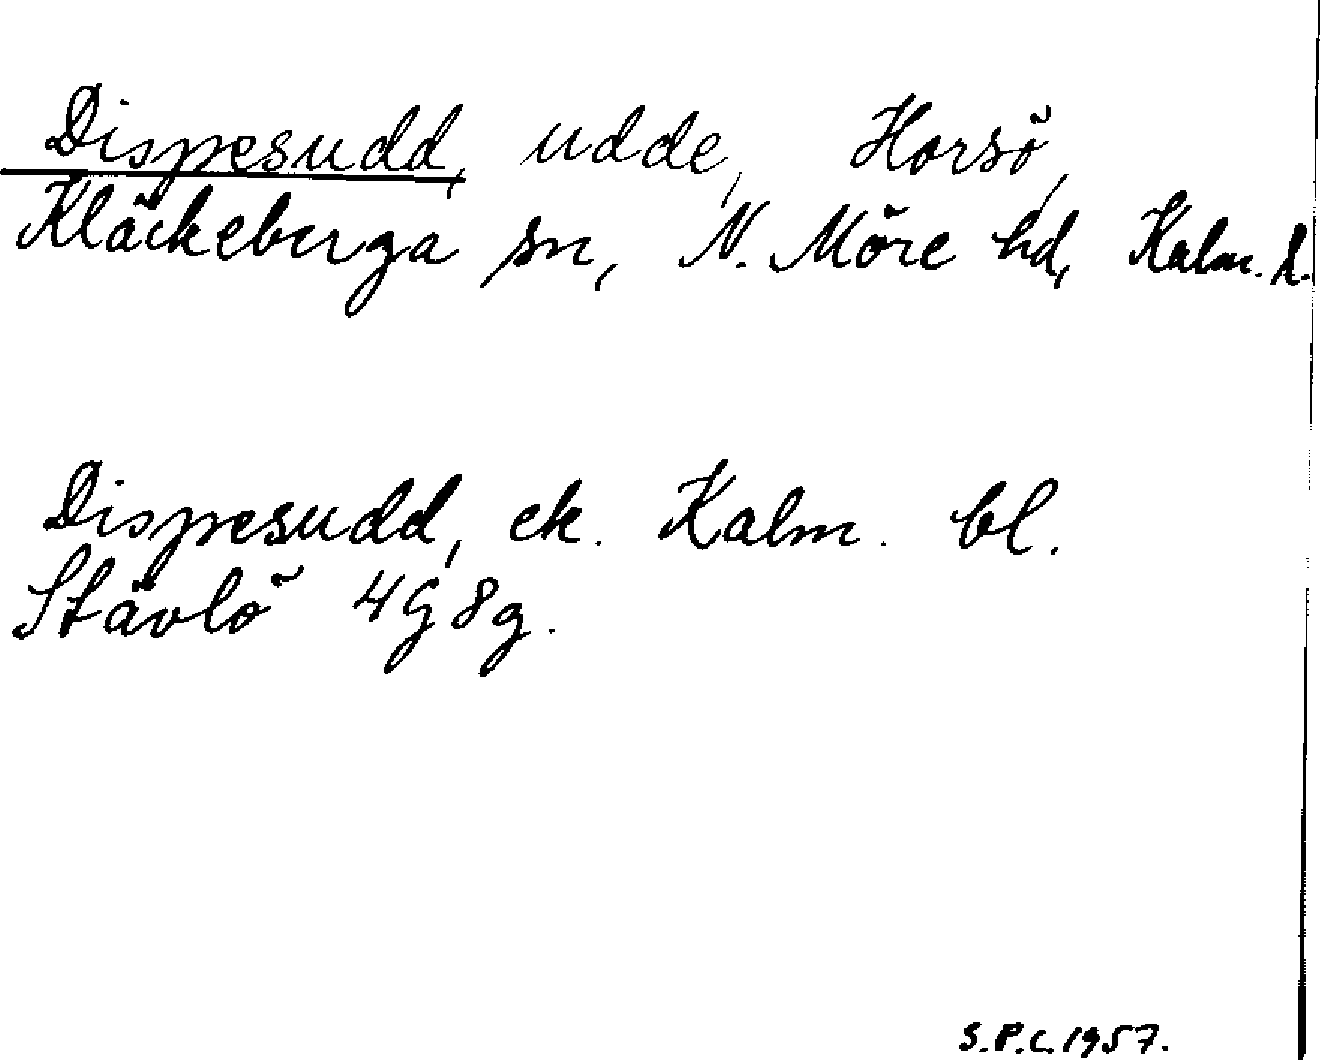 Dispesudd, udde, Horsö,
Kläckeberga sn, N. Möre hd, Kalm. l.
Dispesudd, ek. Kalm. bl.
Stävlö 4G8g.
S.P.C. 1957.